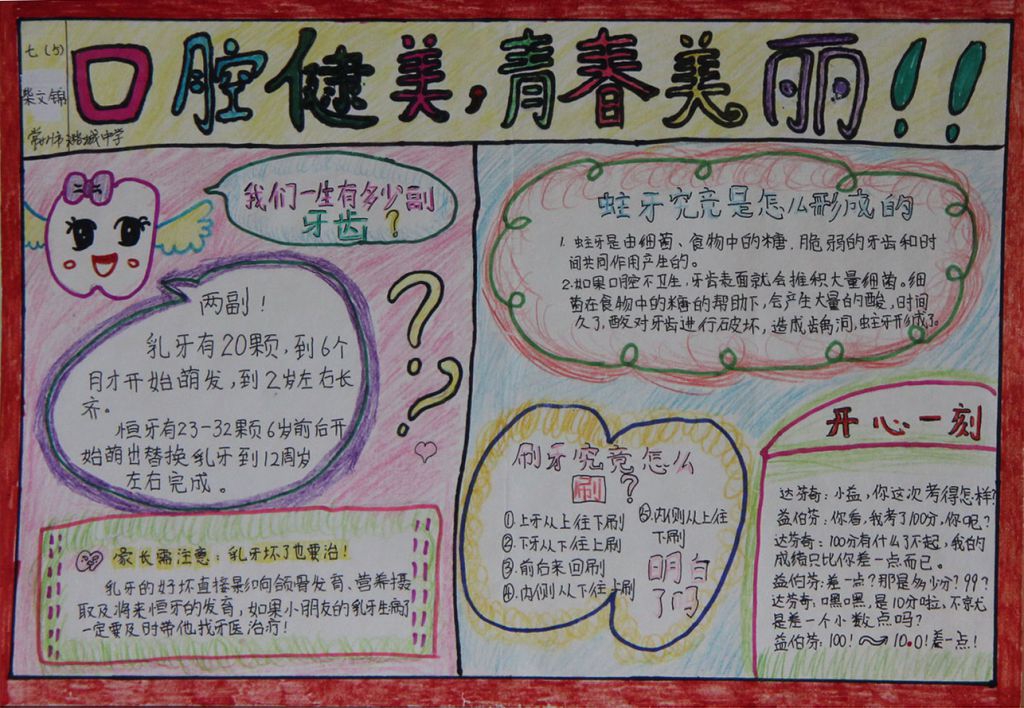 七(5)
柴文锦
常州市潞城中学
口腔健美,青春美丽!!
我们一生有多少副
牙齿?
两副!
乳牙有20颗,到6个
月才开始萌发,到2岁左右长
齐。
恒牙有23-32颗6岁前后开
始萌出替换乳牙到12周岁
左右完成。
家长需注意:乳牙坏了也要治!
乳牙的好坏直接影响颌骨发育、营养摄
取及将来恒牙的发育,如果小朋友的乳牙生病了
一定要及时带他找牙医治疗!
蛀牙究竟是怎么形成的
1. 蛀牙是由细菌、食物中的糖.脆弱的牙齿和时
间共同作用产生的。
2.如果口腔不卫生,牙齿表面就会堆积大量细菌。细
菌在食物中的糖的帮助下,会产生大量的酸,时间
久了,酸对牙齿进行破坏,造成龋洞,蛀牙形成了。
刷牙究竟怎么
刷?
①.上牙从上往下刷
②.下牙从下往上刷
③.前后来回刷
④.内侧从下往上刷
⑤.内侧从上往
下刷
明白
了吗
开心一刻
达芬奇:小益,你这次考得怎样?
益伯芬:你看,我考了100分,你呢?
达芬奇:100分有什么了不起,我的
成绩只比你差一点而已。
益伯芬:差一点?那是多少分?99?
达芬奇:嘿嘿,是10分啦,不就
是差一个小数点吗?
益伯芬:100!~→10.0!差一点!